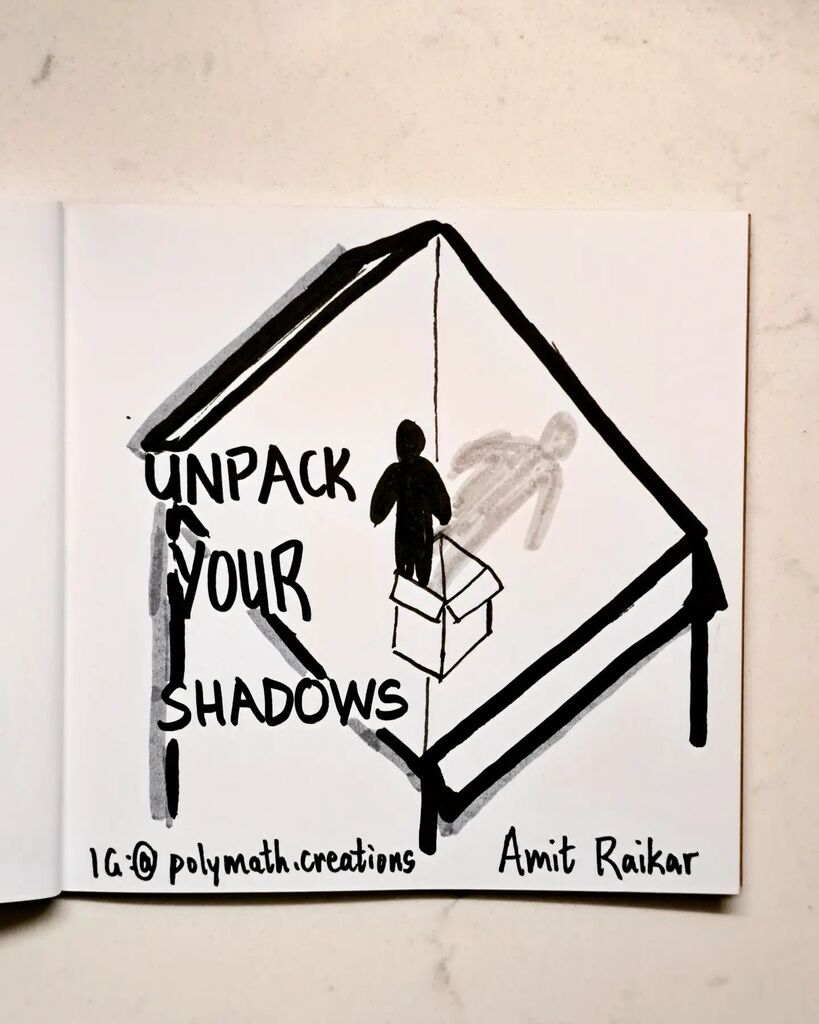 UNPACK
YOUR
SHADOWS
IG:@polymath.creations
Amit Raikar